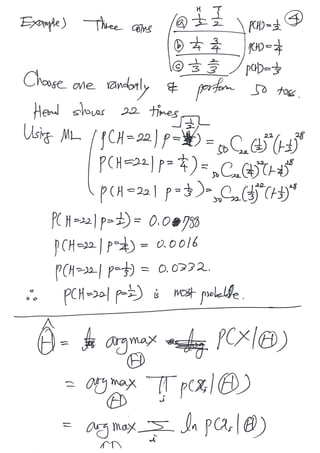 ④
H T
Example) Three coins ⓐ 1/2 1/2 P(H)=1/2
ⓑ 1/4 3/4 P(H)=1/4
ⓒ 1/3 2/3 P(H)=1/3
Choose one randomly & perform 50 toss.
Head shows 22 times
Using ML P(H=22|p=1/2) = 50C22 (1/2)^22 (1-1/2)^28
P(H=22|p=1/4) = 50C22 (1/4)^22 (1-1/4)^28
P(H=22|p=1/3) = 50C22 (1/3)^22 (1-1/3)^28
P(H=22|p=1/2) = 0.0788
P(H=22|p=1/4) = 0.0016
P(H=22|p=1/3) = 0.0332.
∴ P(H=22|p=1/2) is most probable.
Ĥ = argmax P(X|Ⓗ)
Ⓗ
= argmax ∏ p(xi|Ⓗ)
Ⓗ i
= argmax Σ ln p(xi|Ⓗ)
i